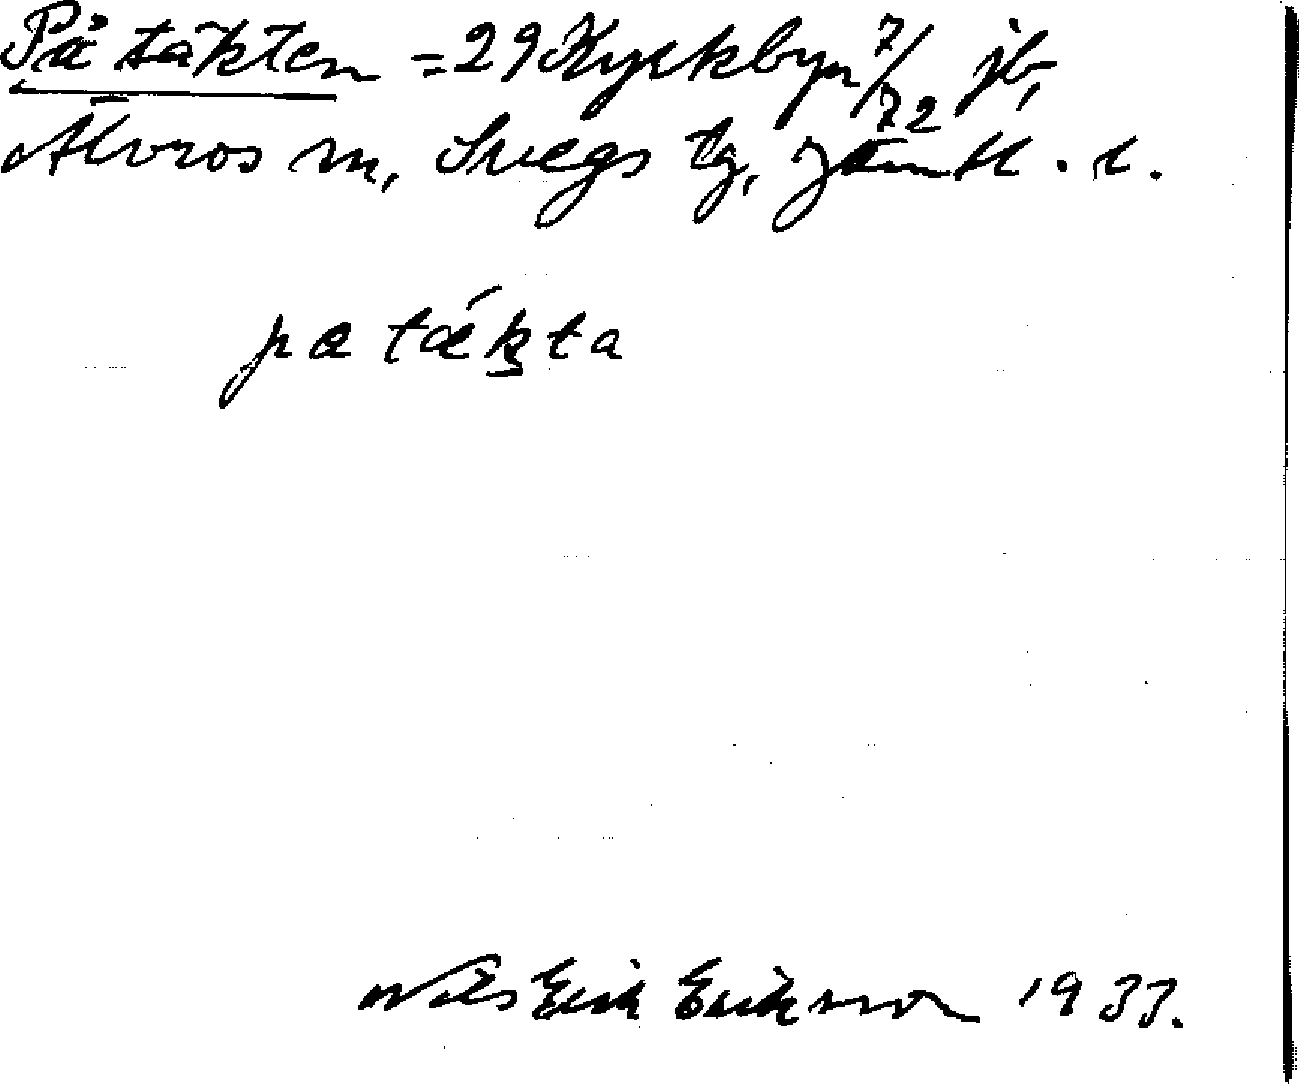 På täkten = 29 Kyrkbyn 7/72 jb,
Älvros sn, Svegs tg, Jämtl. l.
pa tækta
Nils Erik Eriksson 1933.